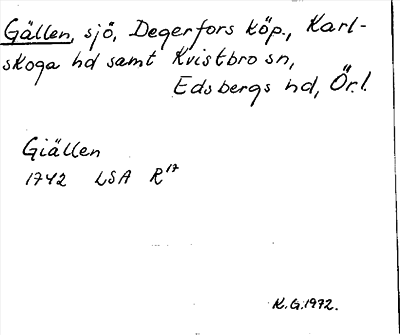 Gällen, sjö, Degerfors köp., Karl-
skoga hd samt Kvistbro sn,
Edsbergs hd, Ör.l.
Giällen
1742 LSA R17
K.G.1972.